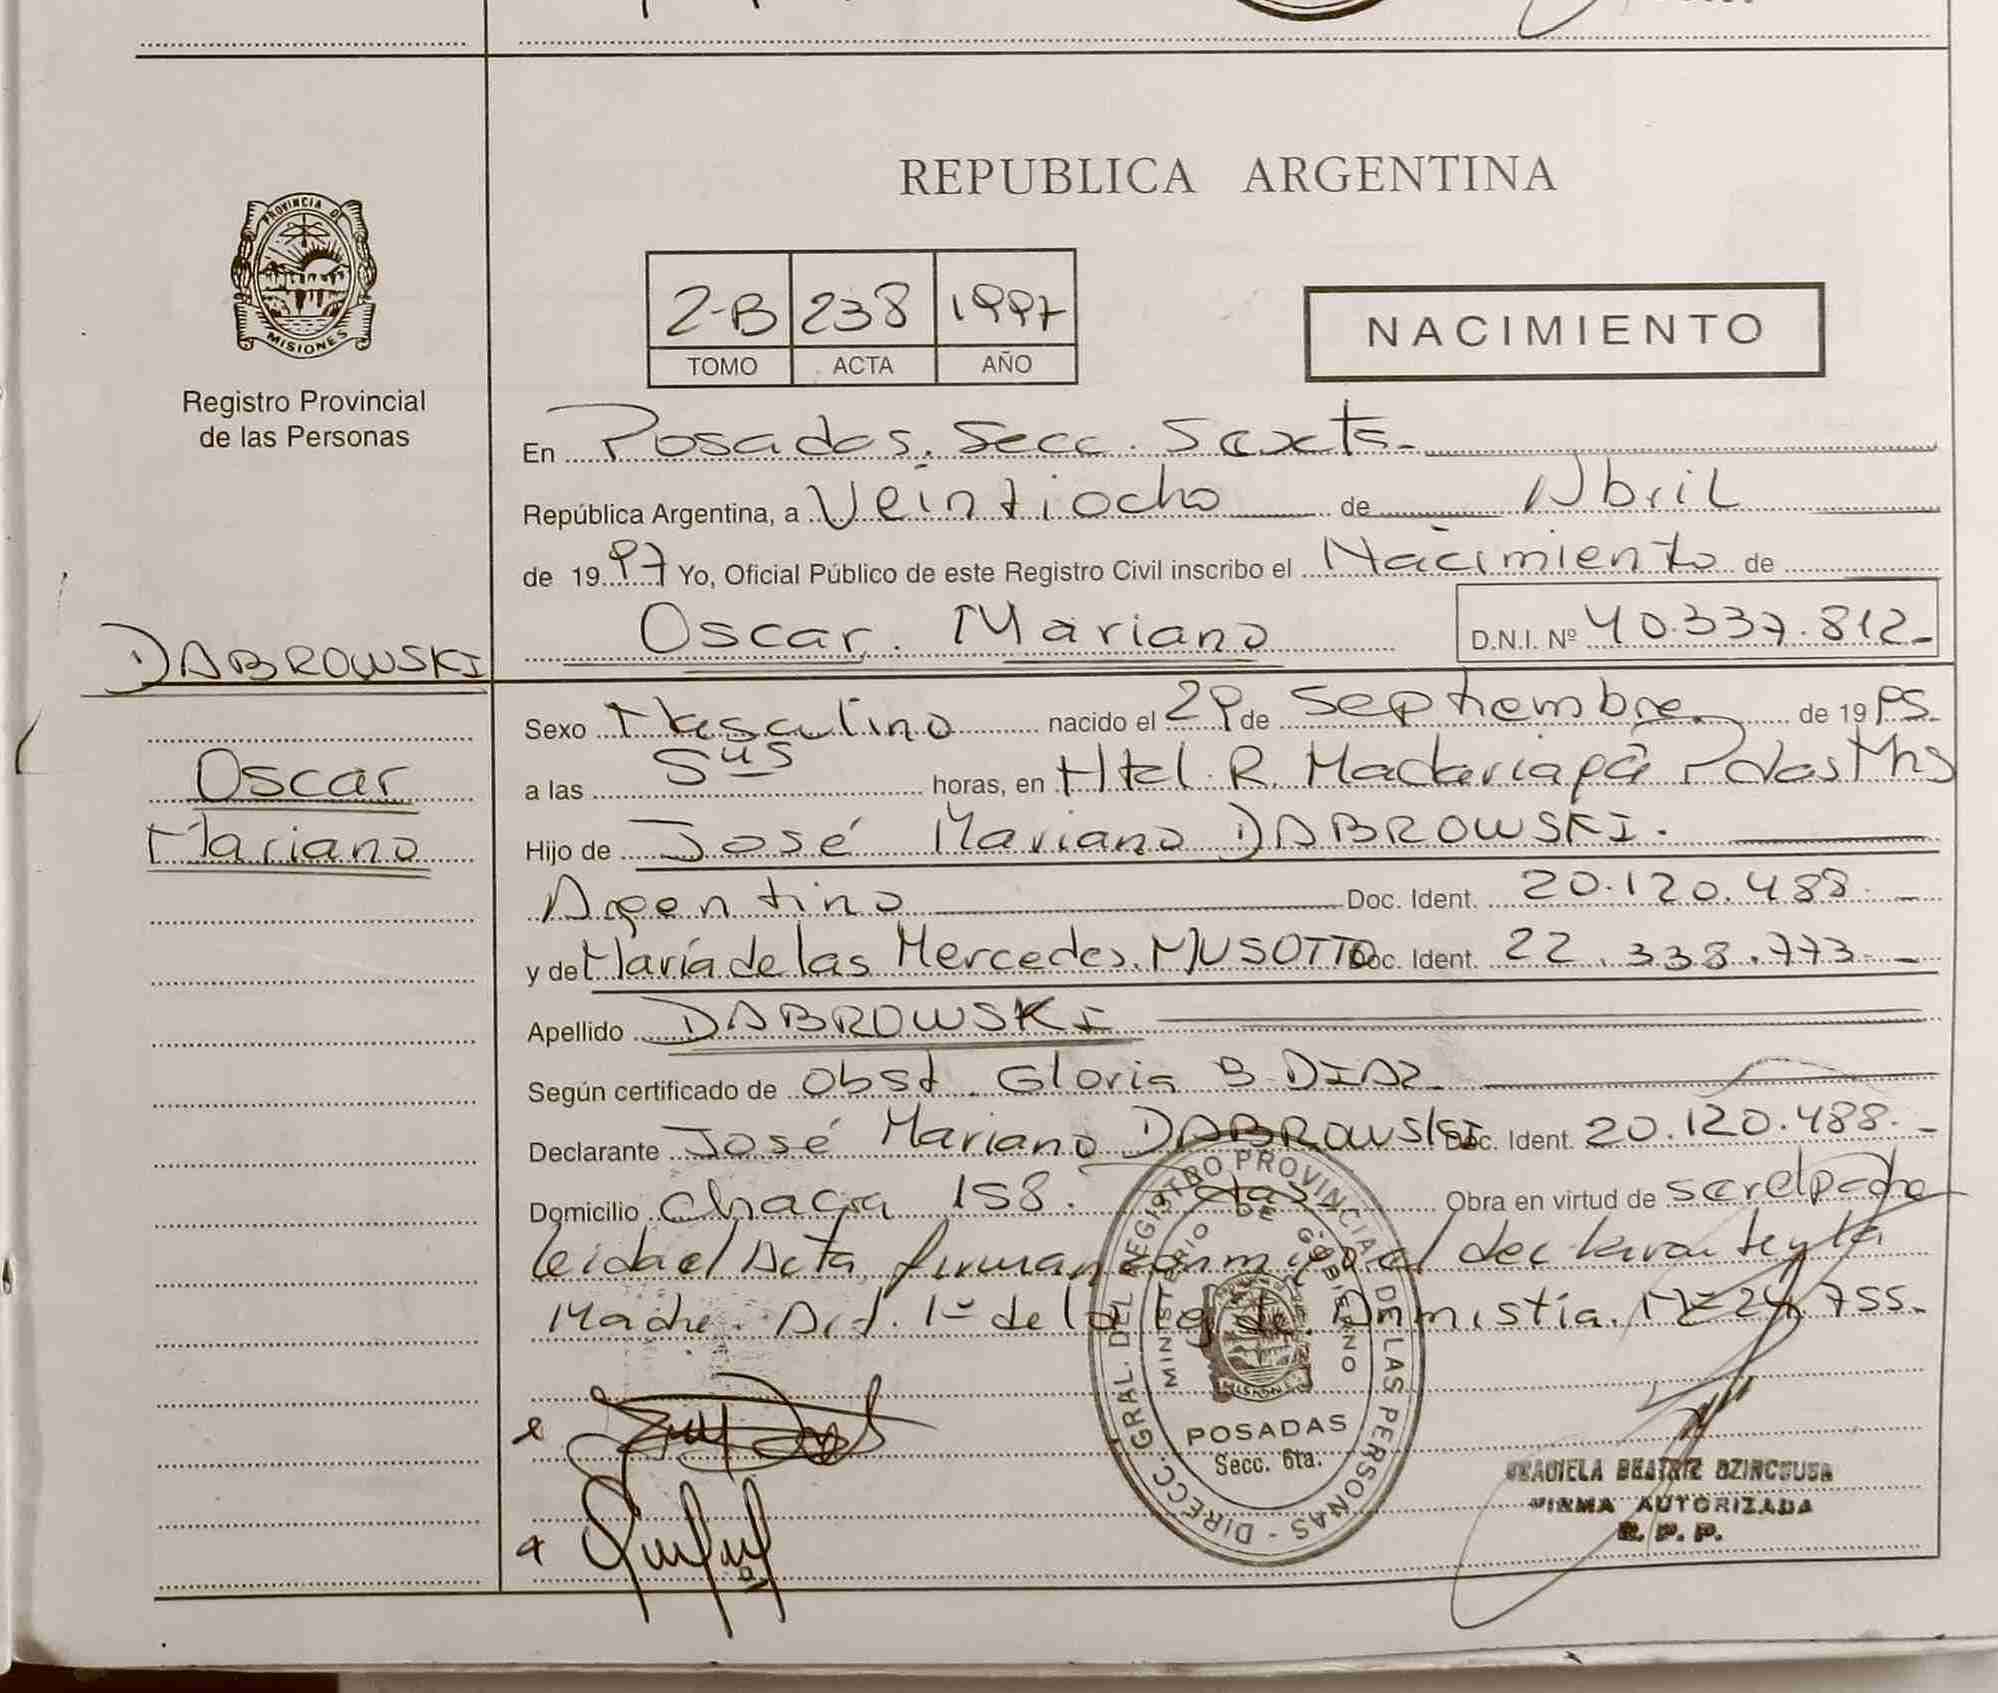 REPUBLICA ARGENTINA
PROVINCIA DE
MISIONES
Registro Provincial
de las Personas
2-B 238 1997
TOMO ACTA AÑO
NACIMIENTO
En Posadas. Secc. Sexta.
República Argentina, a Veintiocho de Abril
de 1997 Yo, Oficial Público de este Registro Civil inscribo el Nacimiento de
Oscar. Mariano D.N.I. Nº 40.337.812
DABROWSKI
Oscar
Mariano
Sexo Masculino nacido el 29 de Septiembre de 1995.
a las 5 horas, en Htal. R. Madariaga Pdas Mns
Hijo de José Mariano DABROWSKI.
Argentino Doc. Ident. 20.120.488
y de María de las Mercedes. MUSOTTO Doc. Ident. 22.338.773
Apellido DABROWSKI
Según certificado de Obst. Gloria B. DIAZ
Declarante José Mariano DABROWSKI Doc. Ident. 20.120.488.
Domicilio Chacra 158. Pdas Obra en virtud de ser el padre
leida el Acta firman conmigo el declarante y la
Madre. Art. 1º de la Ley de Amnistía. Nº 24.755.
DIRECC. GRAL. DEL REGISTRO PROVINCIAL DE LAS PERSONAS -
MINISTERIO DE GOBIERNO
MISIONES
POSADAS
Secc. 6ta.
BEATRIZ
FIRMA AUTORIZADA
R. P. P.